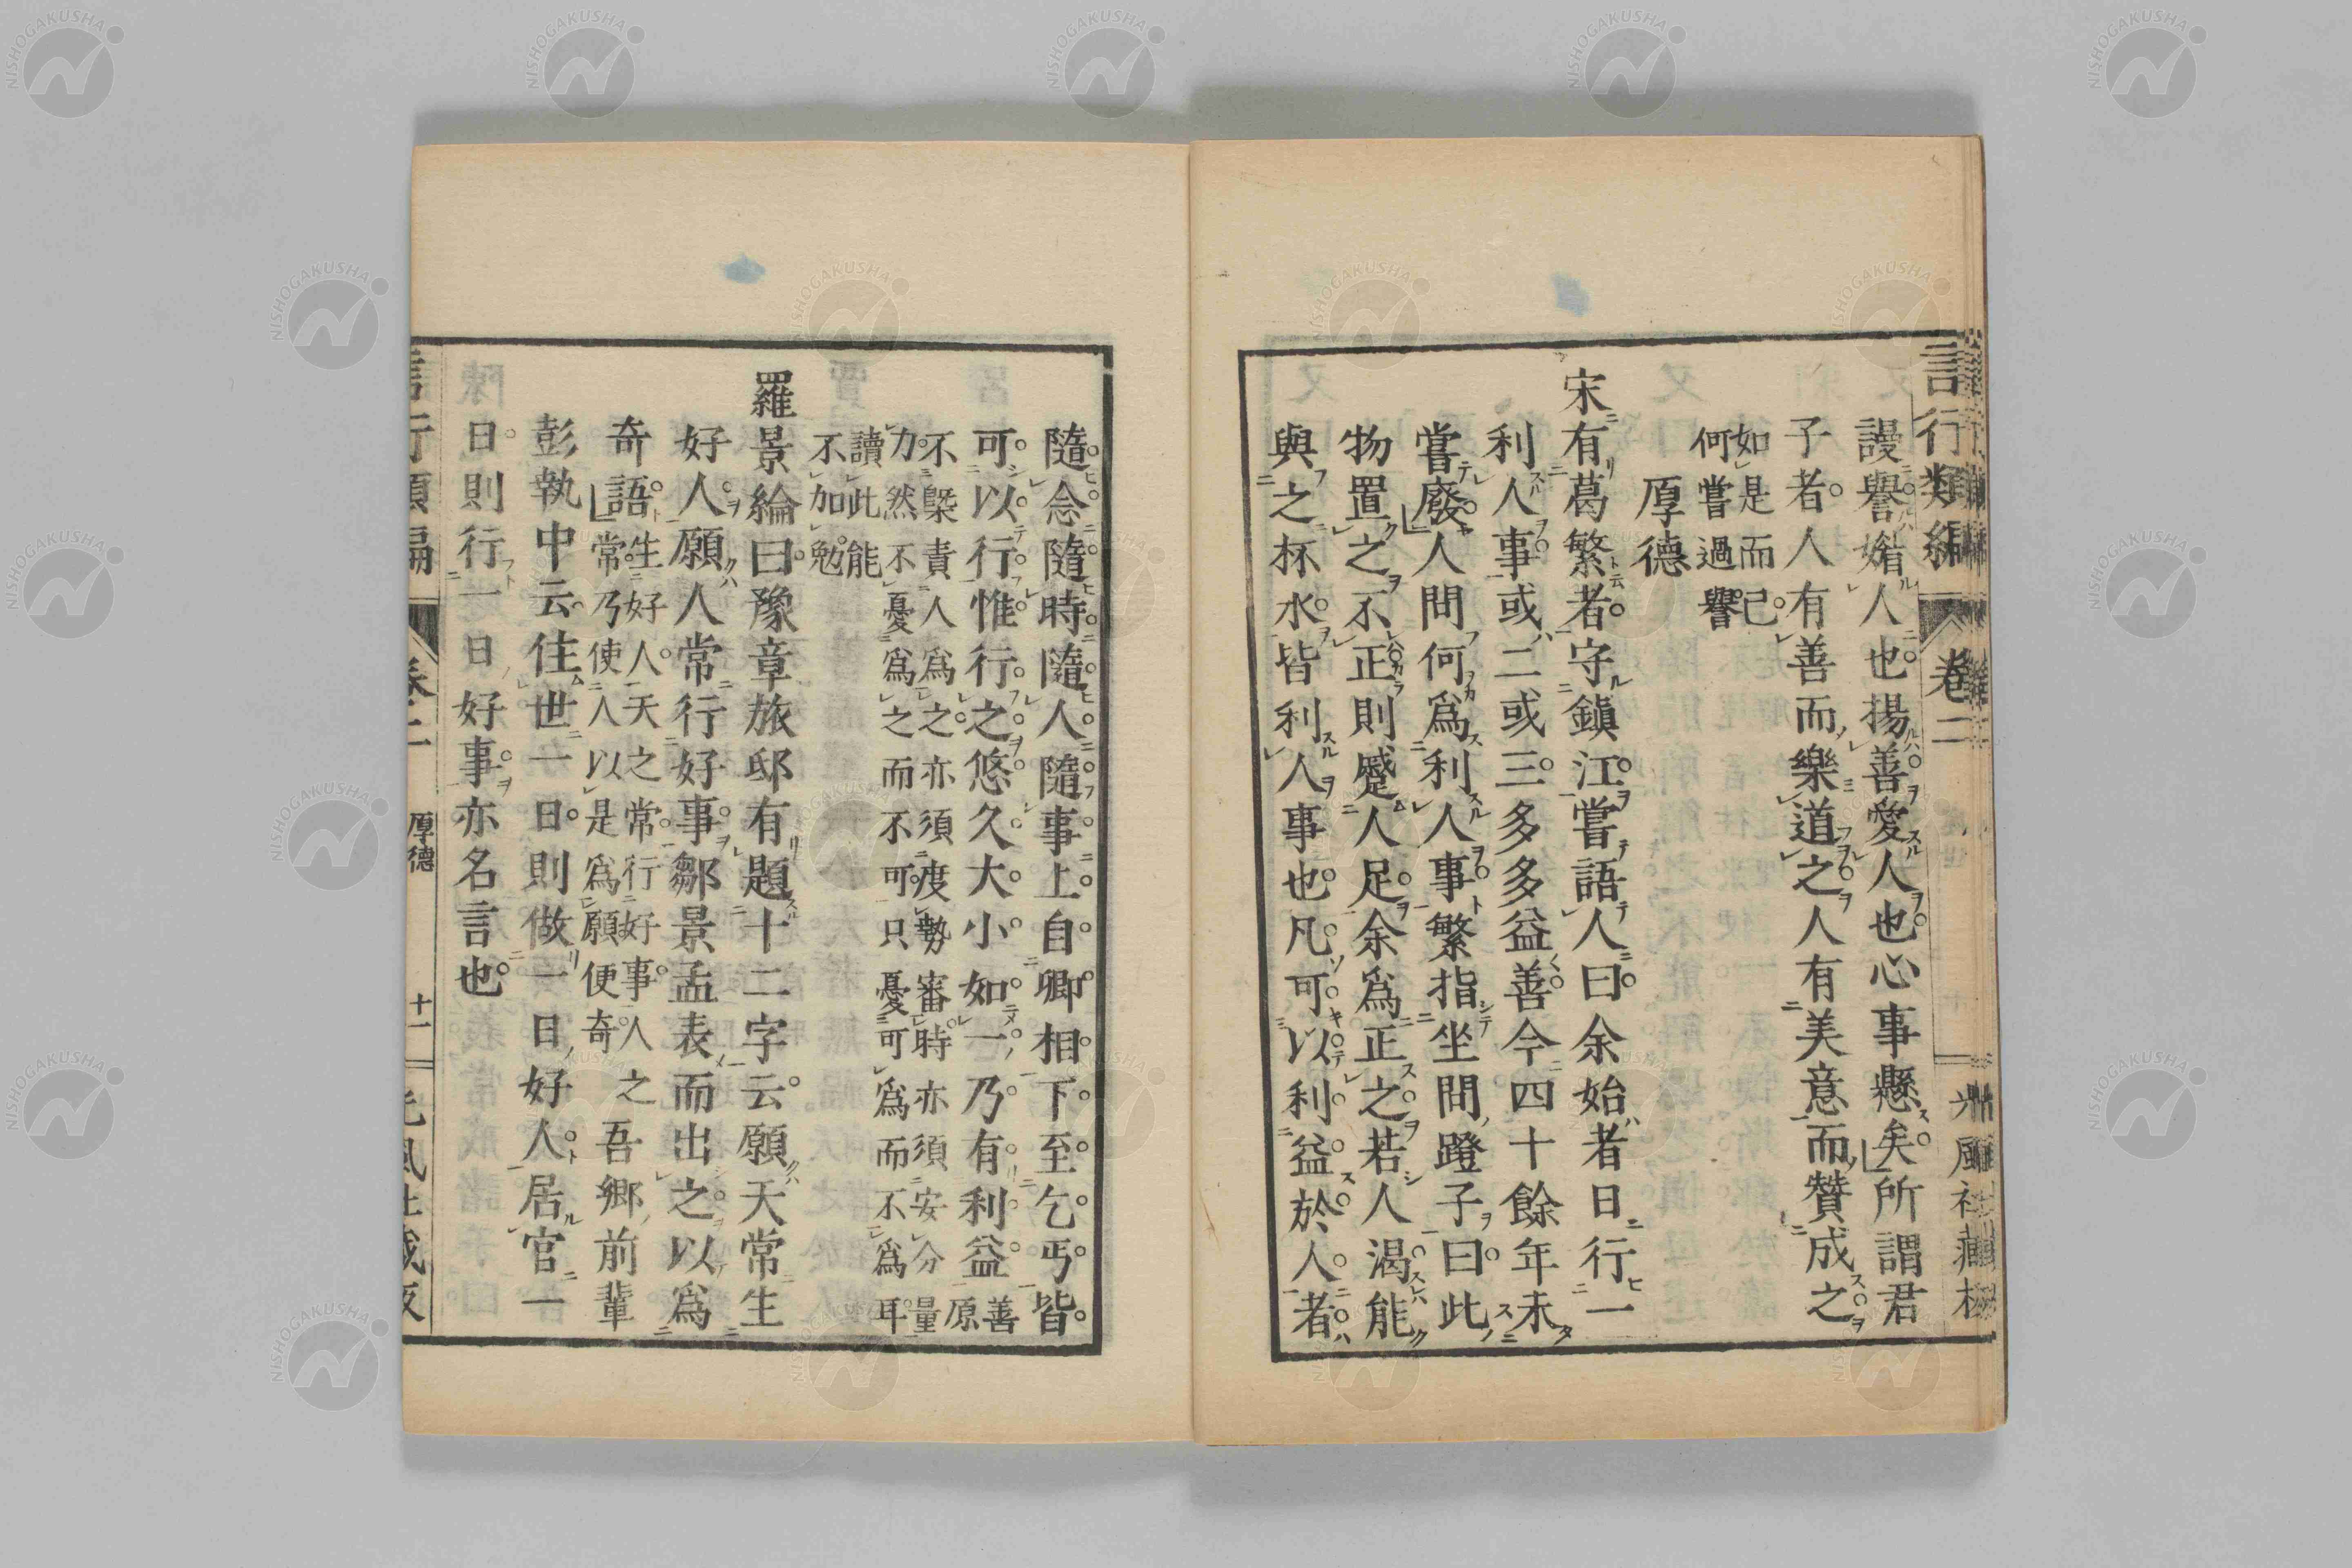 言行類編 卷二
謾譽媚人也揚善愛人也心事懸矣所謂君
子者人有善而樂道之人有美意而贊成之
如是而已
何嘗過譽
厚德
宋有葛繁者守鎮江嘗語人曰余始者日行一
利人事或二或三多多益善今四十餘年未
嘗廢人問何爲利人事繁指坐間蹬子曰此
物置之不正則蹙人足余爲正之若人渴能
與之杯水皆利人事也凡可以利益於人者
隨念隨時隨人隨事上自卿相下至乞丐皆
可以行惟行之悠久大小如一乃有利益善原
不槩責人爲之亦須度勢審時亦須安分量
力然不憂爲之而不可只憂可爲而不爲耳
讀此能
不加勉
羅景綸曰豫章旅邸有題十二字云願天常生
好人願人常行好事鄒景孟表而出之以爲
奇語生好人天之常行好事人之
常乃使人以是爲願便奇吾鄉前輩
彭執中云住世一日則做一日好人居官一
日則行一日好事亦名言也
厚德 十一
NISHOGAKUSHA